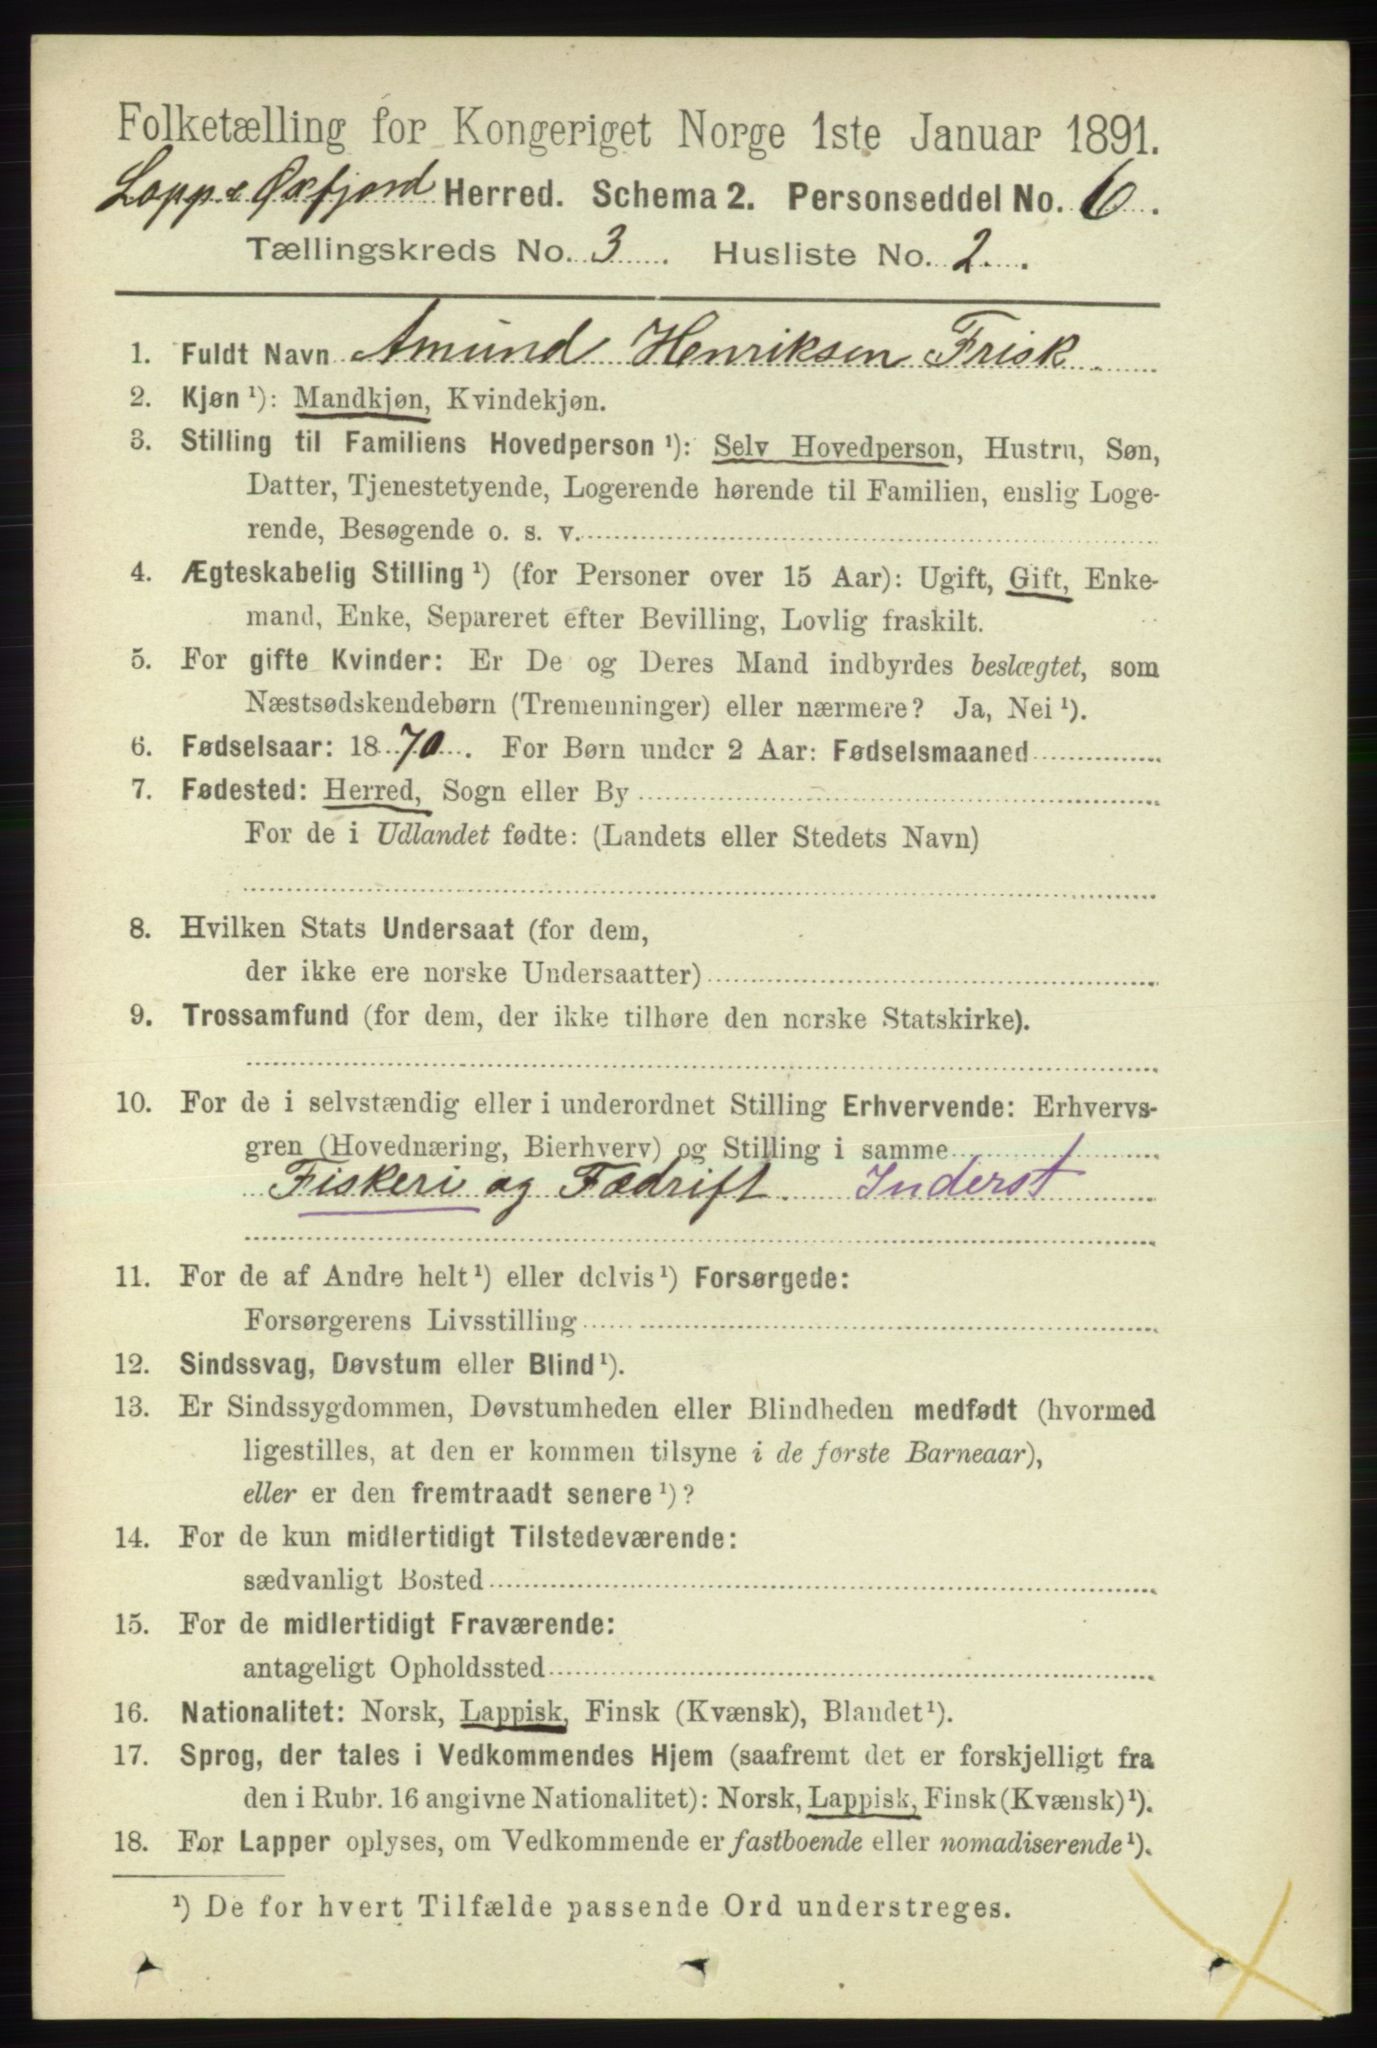 Folketælling for Kongeriget Norge 1ste Januar 1891.
Loppe Øxfjord Herred. Schema 2. Personseddel No. 6.
Tællingskreds No. 3. Husliste No. 2.
1. Fuldt Navn Amund Henriksen Frisk.
2. Kjøn ¹): Mandkjøn, Kvindekjøn.
3. Stilling til Familiens Hovedperson ¹): Selv Hovedperson, Hustru, Søn,
Datter, Tjenestetyende, Logerende hørende til Familien, enslig Loge-
rende, Besøgende o. s. v.
4. Ægteskabelig Stilling ¹) (for Personer over 15 Aar): Ugift, Gift, Enke-
mand, Enke, Separeret efter Bevilling, Lovlig fraskilt.
5. For gifte Kvinder: Er De og Deres Mand indbyrdes beslægtet, som
Næstsødskendebørn (Tremenninger) eller nærmere? Ja, Nei ¹).
6. Fødselsaar: 1870. For Børn under 2 Aar: Fødselsmaaned
7. Fødested: Herred, Sogn eller By
For de i Udlandet fødte: (Landets eller Stedets Navn)
8. Hvilken Stats Undersaat (for dem,
der ikke ere norske Undersaatter)
9. Trossamfund (for dem, der ikke tilhøre den norske Statskirke).
10. For de i selvstændig eller i underordnet Stilling Erhvervende: Erhvervs-
gren (Hovednæring, Bierhverv) og Stilling i samme
Fiskeri og Fædrift. Inderst
11. For de af Andre helt ¹) eller delvis ¹) Forsørgede:
Forsørgerens Livsstilling
12. Sindssvag, Døvstum eller Blind ¹).
13. Er Sindssygdommen, Døvstumheden eller Blindheden medfødt (hvormed
ligestilles, at den er kommen tilsyne i de første Barneaar),
eller er den fremtraadt senere ¹)?
14. For de kun midlertidigt Tilstedeværende:
sædvanligt Bosted
15. For de midlertidigt Fraværende:
antageligt Opholdssted
16. Nationalitet: Norsk, Lappisk, Finsk (Kvænsk), Blandet ¹).
17. Sprog, der tales i Vedkommendes Hjem (saafremt det er forskjelligt fra
den i Rubr. 16 angivne Nationalitet): Norsk, Lappisk, Finsk (Kvænsk) ¹).
18. For Lapper oplyses, om Vedkommende er fastboende eller nomadiserende ¹).
¹) De for hvert Tilfælde passende Ord understreges.